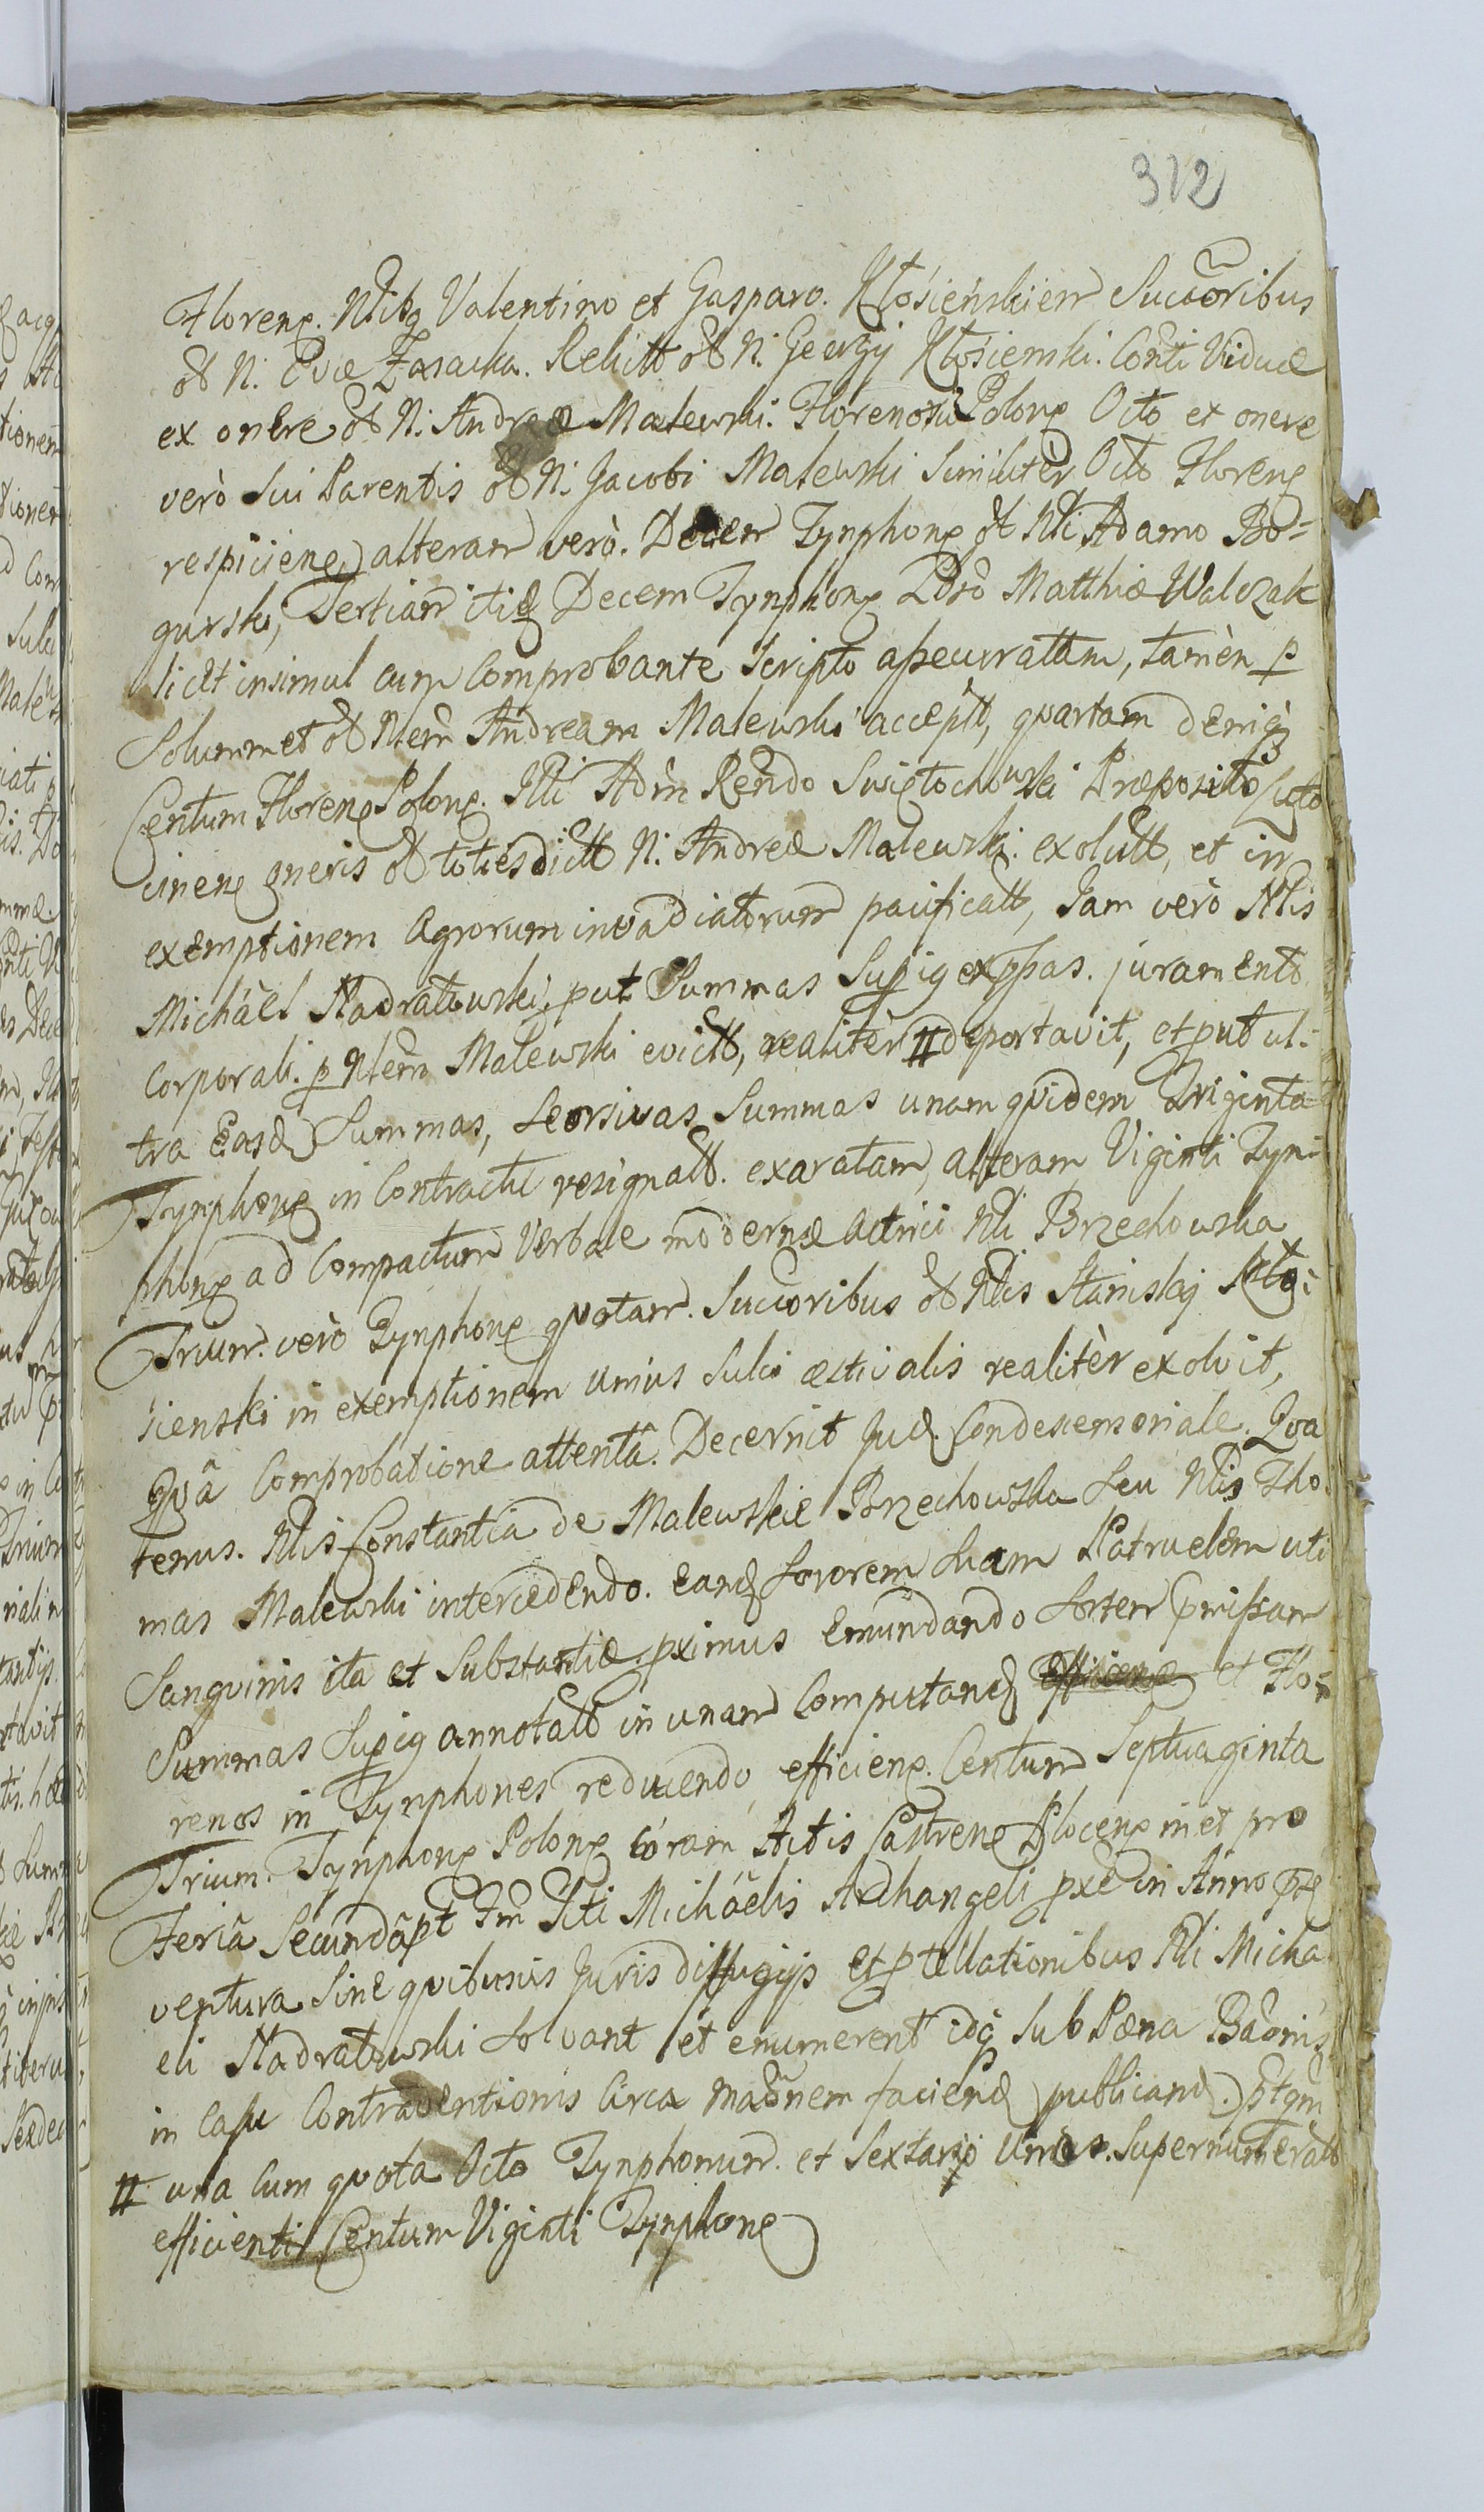 312
Floren. Nlibg Valentino et Gasparo. Kłosieńskien Succoribus
et N. Evæ Zasacka. Relict et N. Georgij Kłosienski. Conti Viduæ
ex onere et N. Andreæ Malewski. Florenoru Polon Octo et onere
verò Sui Parentis et N. Jacobi Malewski Similitèr Octo Floren
respicien alteram verò. Decem Tynphon et Nli Adamo Bo=
gurski, Tertiam itid Decem Tynphon Matthiæ Walczak
licet insimul cum Comprobante Scripto assecurattam, tamèn p
Solummet et Nlem Andream Malewski accept, quartam deniq
Centum Floren Polon. Illi Adm Rendo Swiętochowski Præposito
cinen oneris et totiesdict N. Andreæ Malewski. exolutt, et in
exemptionem Agrorum invadiatorum pacificatt, Jam verò Nlis
Michäel Nadratowski, put Summas Supig exppas. juramento
Corporali. p Nlem Malewski evictt, realitèr # deportavit, et put ul=
tra Easd Summas, Seorsivas Summas unam quidem Triginta
Tynphon in Contractu resignatt. exaratam, alteram Viginti Tyn=
phon ad Compactum Verbale modernæ actrici Nli Brzechowska
Trium. verò Tynphon quotam. Succoribus et Nlis Stanislaj Kło=
sienski in exemptionem unius Sulci æstivalis realitèr exolvit,
Qvâ Comprobatione attentâ. Decernit Jud. Condescensoriale. Qva
tenus. Nlis Constantia de Malewskie Brzechowska Seu Nlis Tho
mas Malewski intercedendo. eand Sororem Suam Patruelem uti
Sanguinis ita et Substantiæ. pximus Emundando Sortem pmissam
Summas Supig annotatt in unam Computand efficien et Flo=
renos in Tynphones reducendo, efficien. Centum Septuaginta
Trium. Tynphon Polon coram Actis Castren Plocen in et pro
Feria Secundâ pt Fm Scti Michäelis Archangeli pxe in Anno pt
ventura Sine quibusvis Juris diffugijs et ptellationibus Nli Micha
eli Nadratowski Solvant et enumerent idq Sub Pæna Baonis
in Casu Contraventionis Circa maonem faciend publicand. ptqm
# una Cum quota Octo Tynphonum. et Sextario Unius. Supernumeratt
efficienti Centum Viginti Tynphon